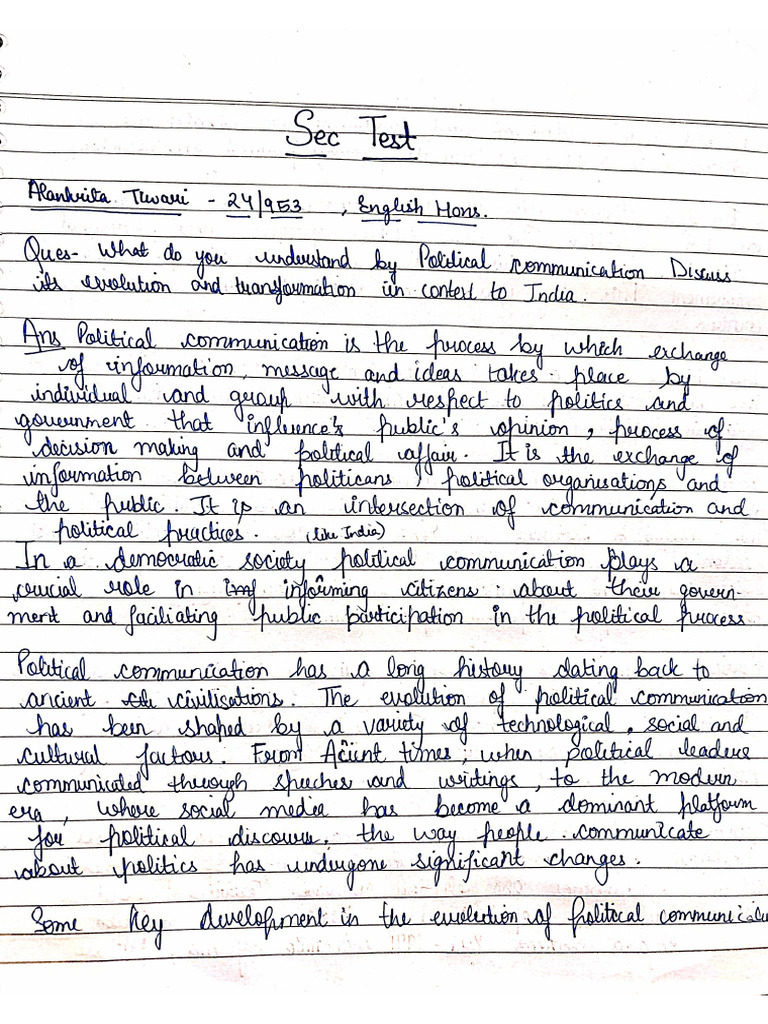 Sec Test
Alankrita Tiwari - 24/953 , English Hons.
Ques- What do you understand by Political communication Discuss
its evolution and transformation in contest to India.
Ans Political communication is the process by which exchange
of information, message and ideas takes place by
individual and group with respect to politics and
government that influence's public's opinion, process of
decision making and political affair. It is the exchange of
information between politicans, political organisations and
the public. It is an intersection of communication and
political practices. (like India)
In a democratic society political communication plays a
crucial role in informing citizens about their govern-
ment and faciliating public participation in the political process
Political communication has a long history dating back to
ancient civilisations. The evolution of political communication
has been shaped by a variety of technological, social and
cultural factors. From Acient times, when political leaders
communicated through speeches and writings, to the modern
era, where social media has become a dominant platform
for political discourse, the way people communicate
about politics has undergone significant changes.
Some key development in the evolution of political communica